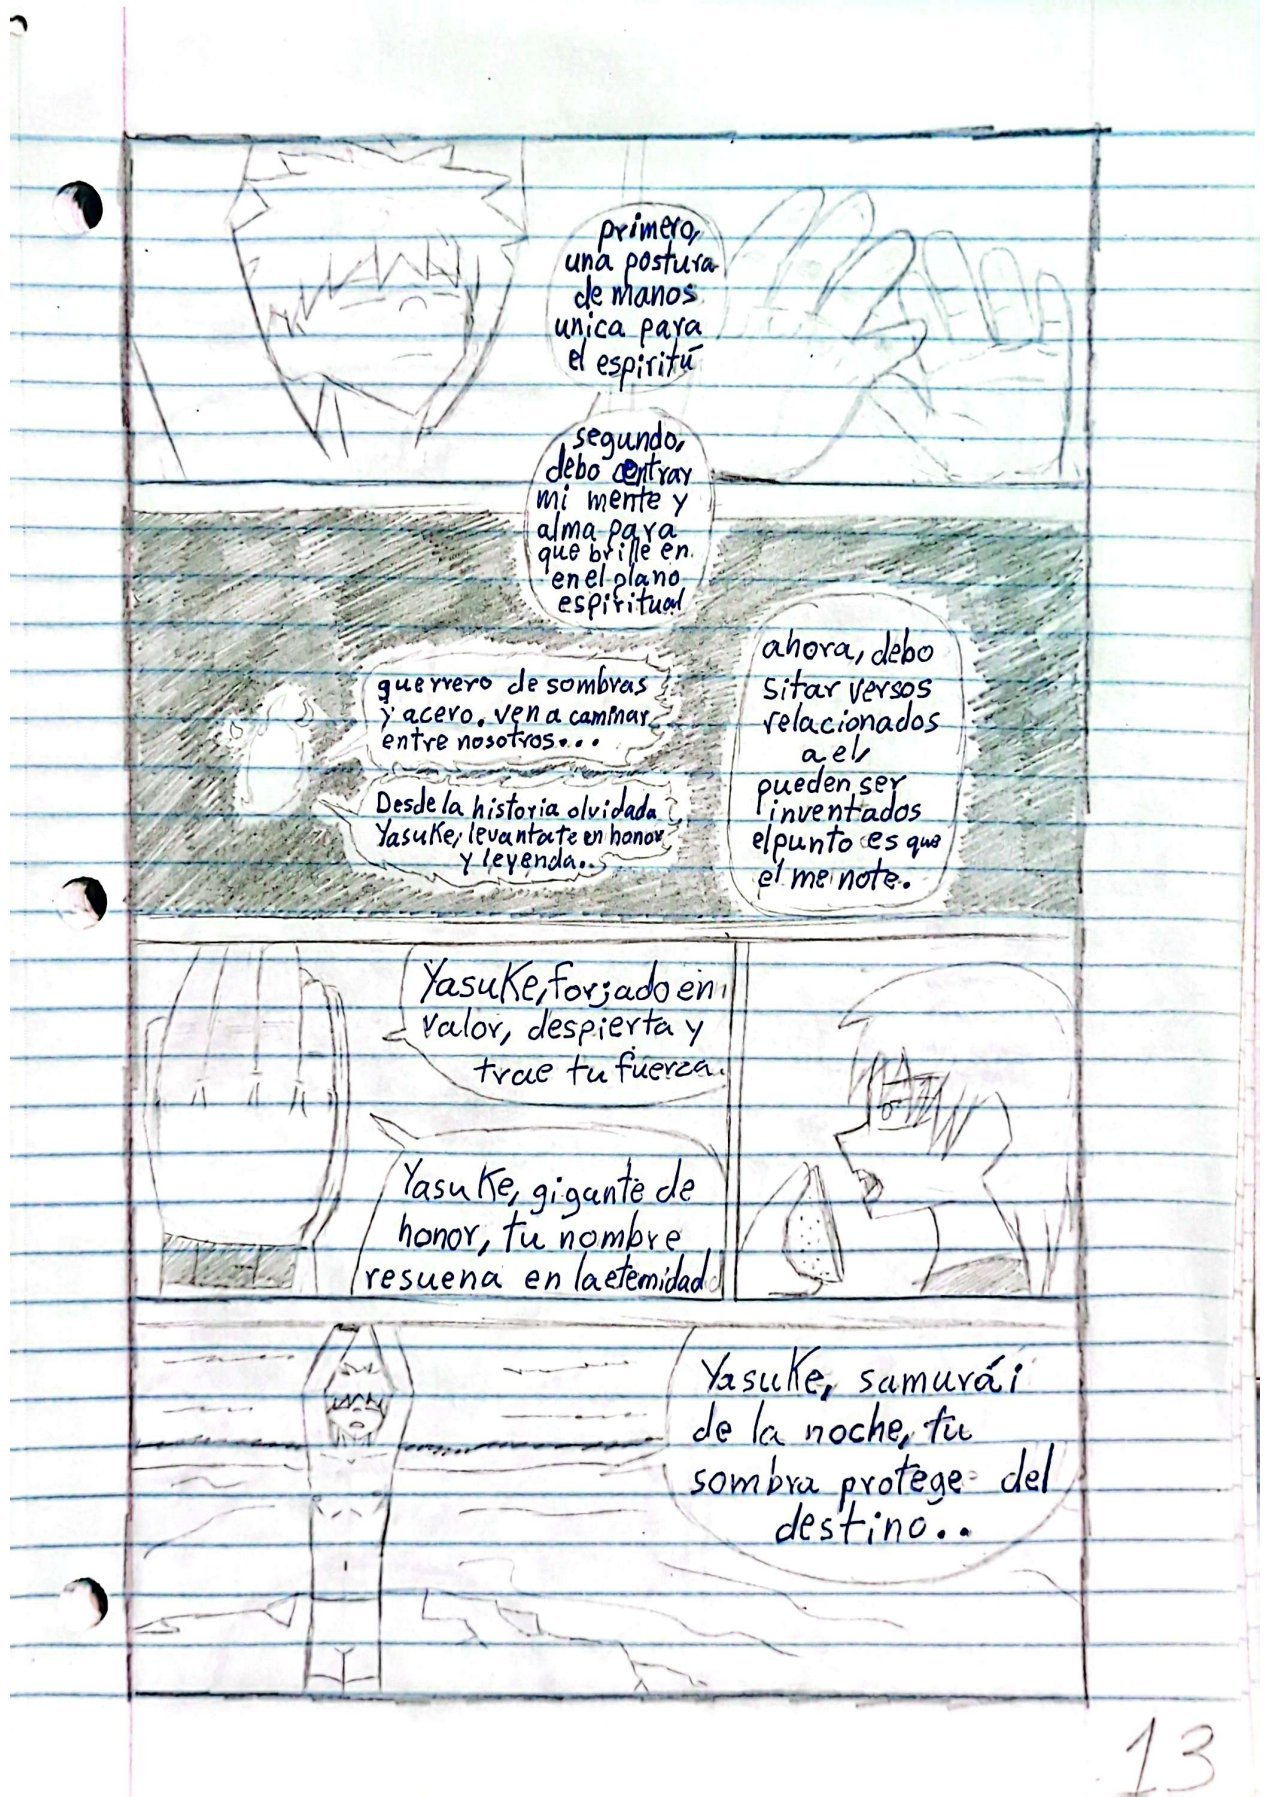 primero,
una postura
de manos
unica para
el espiritú
segundo,
debo centrar
mi mente y
alma para
que brille en
en el plano
espiritual
guerrero de sombras
y acero. ven a caminar
entre nosotros...
Desde la historia olvidada
Yasuke, levantate en honor
y leyenda..
ahora, debo
sitar versos
relacionados
a el,
pueden ser
inventados
el punto es que
el me note.
Yasuke, forjado en
valor, despierta y
trae tu fuerza.
Yasuke, gigante de
honor, tu nombre
resuena en la eternidad
Yasuke, samurái
de la noche, tu
sombra protege del
destino..
13